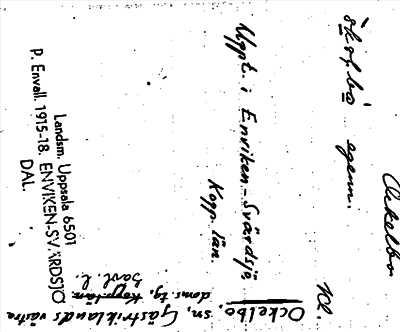 Ockelbo
ökołbo egenn. Kl.
Uppt. i Enviken-Svärdsjö
Kopp. län.
Ockelbo, sn, Gästriklands västra
doms. tg, Kopp. län
Gävl. l.
Landsm. Uppsala 6501
P. Envall. 1915-18. ENVIKEN-SVÄRDSJÖ
DAL.